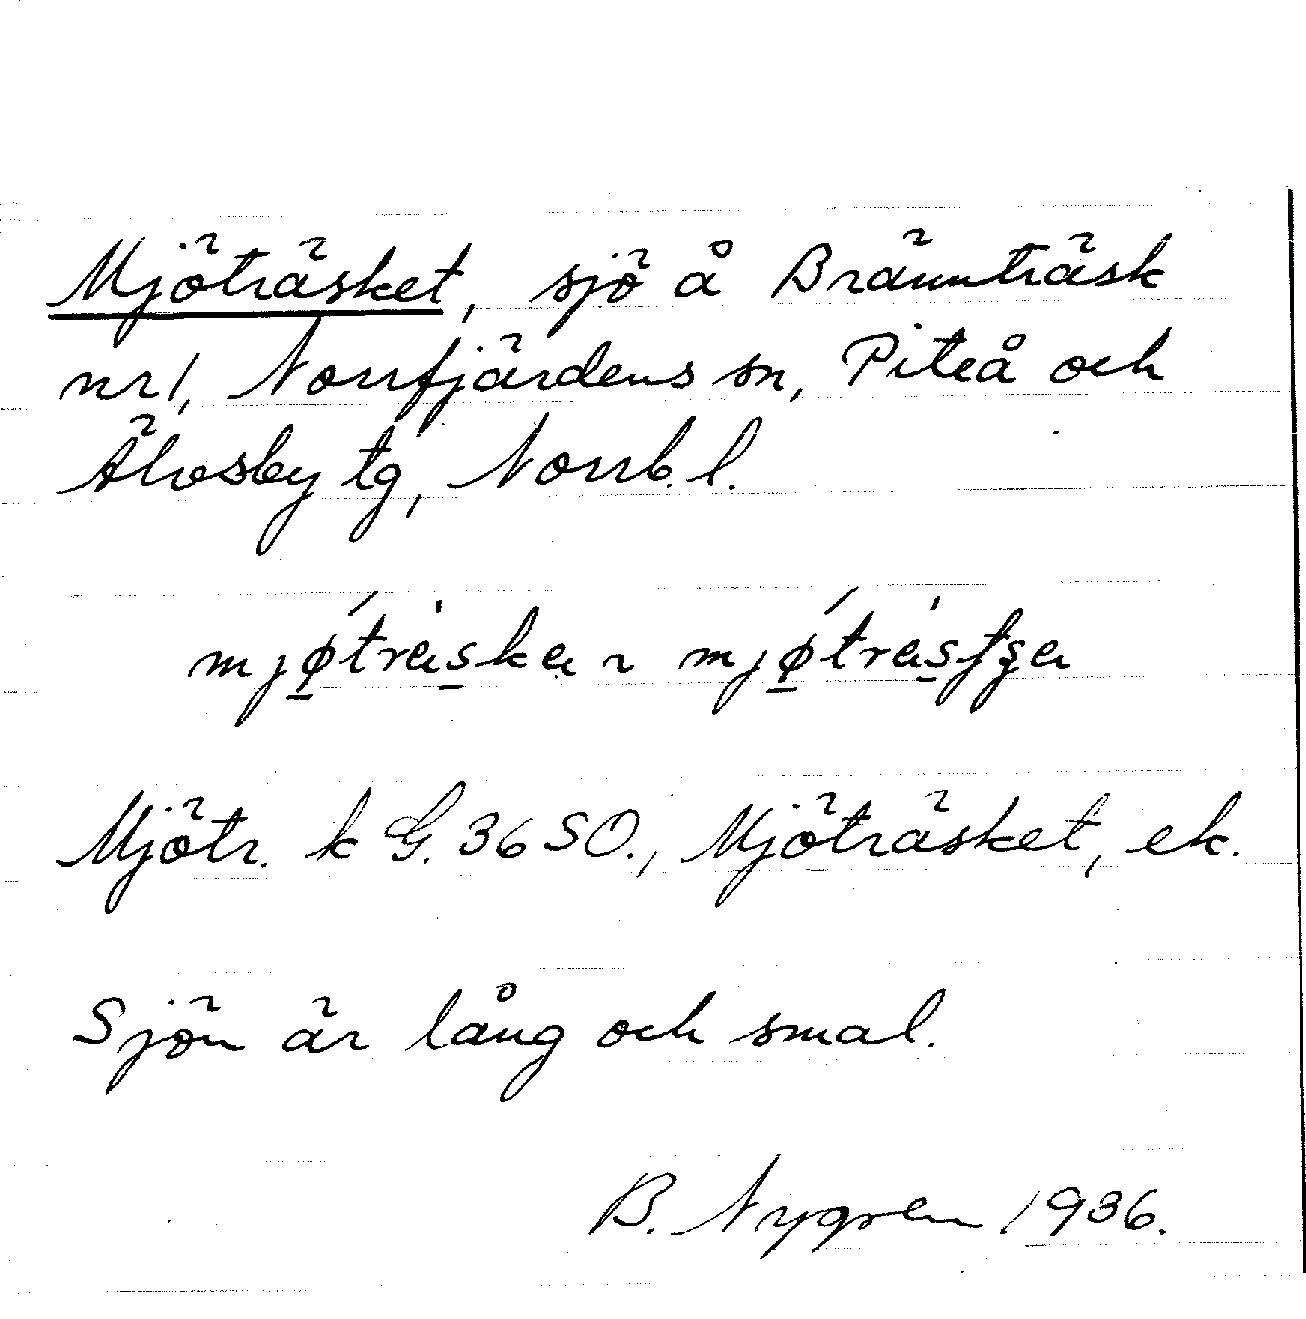 Mjöträsket, sjö å Brännträsk
nr 1, Norrfjärdens sn, Piteå och
Älvsby tg, Norrb. l.
Mjötr. k G. 36 SO., Mjöträsket, ek.
Sjön är lång och smal.
B. Nygren 1936.